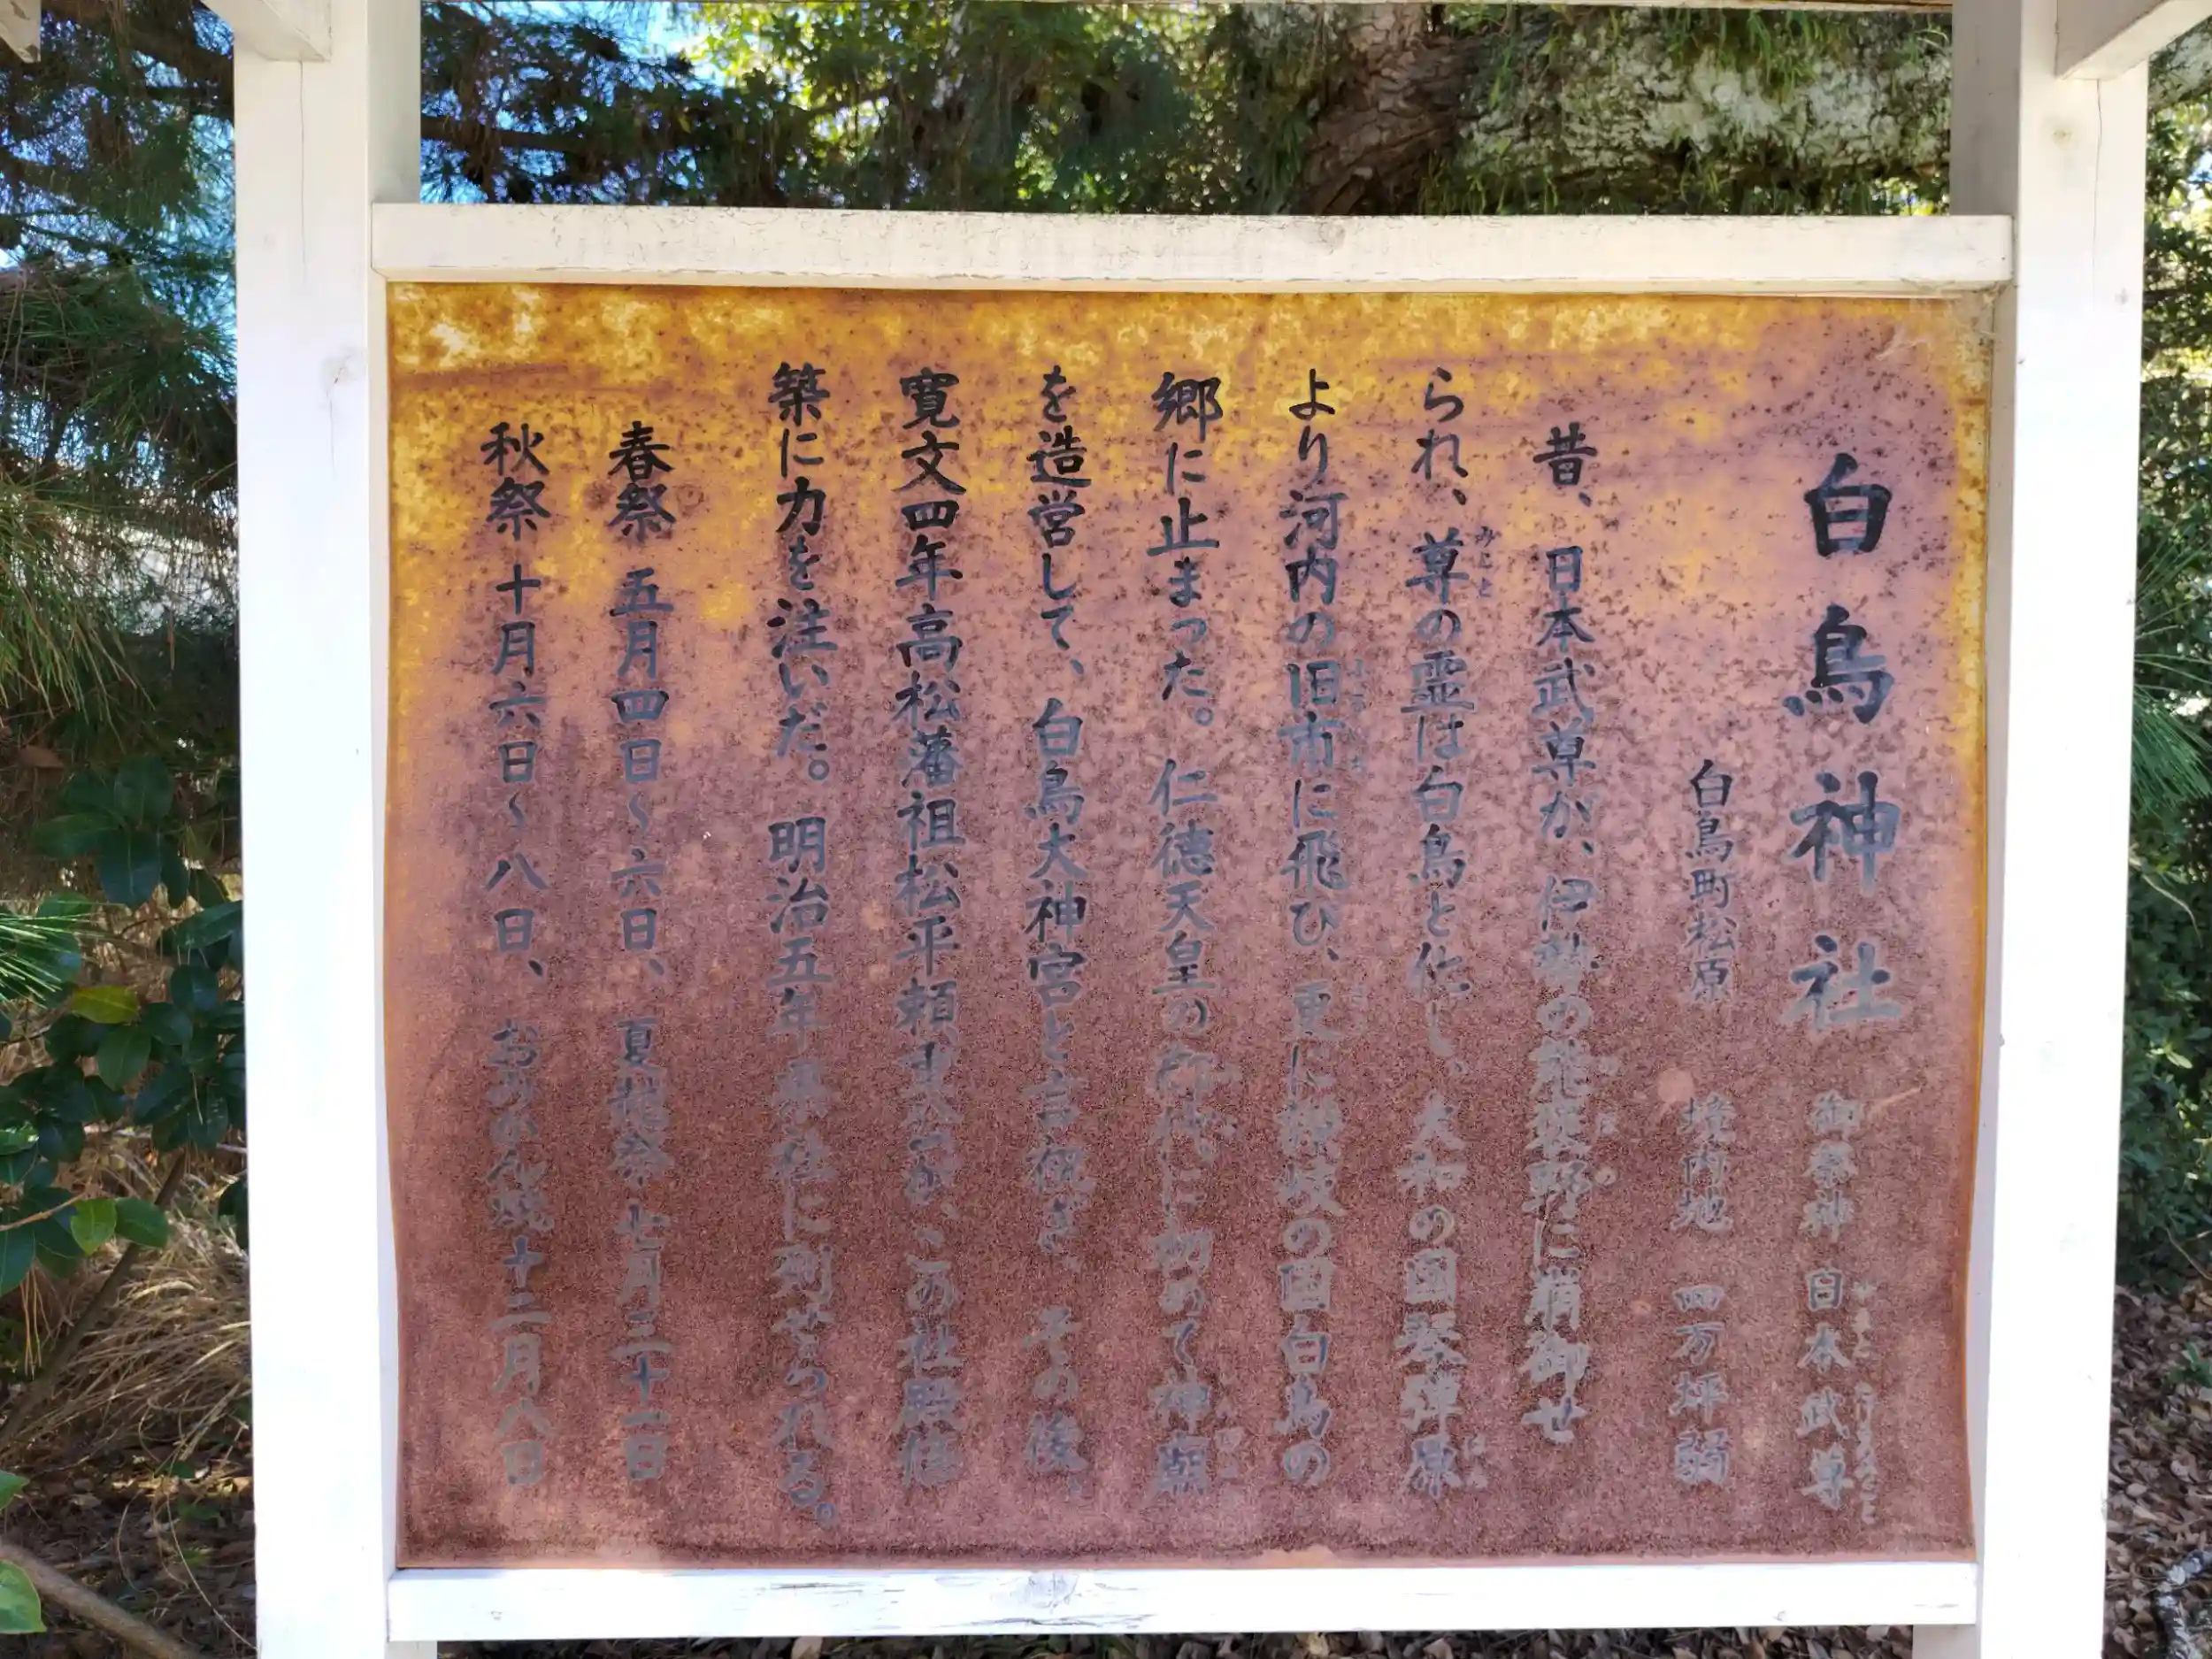 白鳥神社 御祭神 日本武尊
白鳥町松原 境内地 四万坪弱
昔、日本武尊が、伊勢の能褒野に崩御せ
られ、尊の霊は白鳥と化し、大和の国琴弾原
より河内の旧市に飛び、更に讃岐の国白鳥の
郷に止まった。仁徳天皇の御代に初めて神廟
を造営して、白鳥大神宮と言祝ぎ、その後、
寛文四年高松藩祖松平頼重公が、この社殿修
築に力を注いだ。明治五年県社に列せられる。
春祭 五月四日~六日、夏越祭 七月三十一日
秋祭 十月六日~八日、 十二月八日